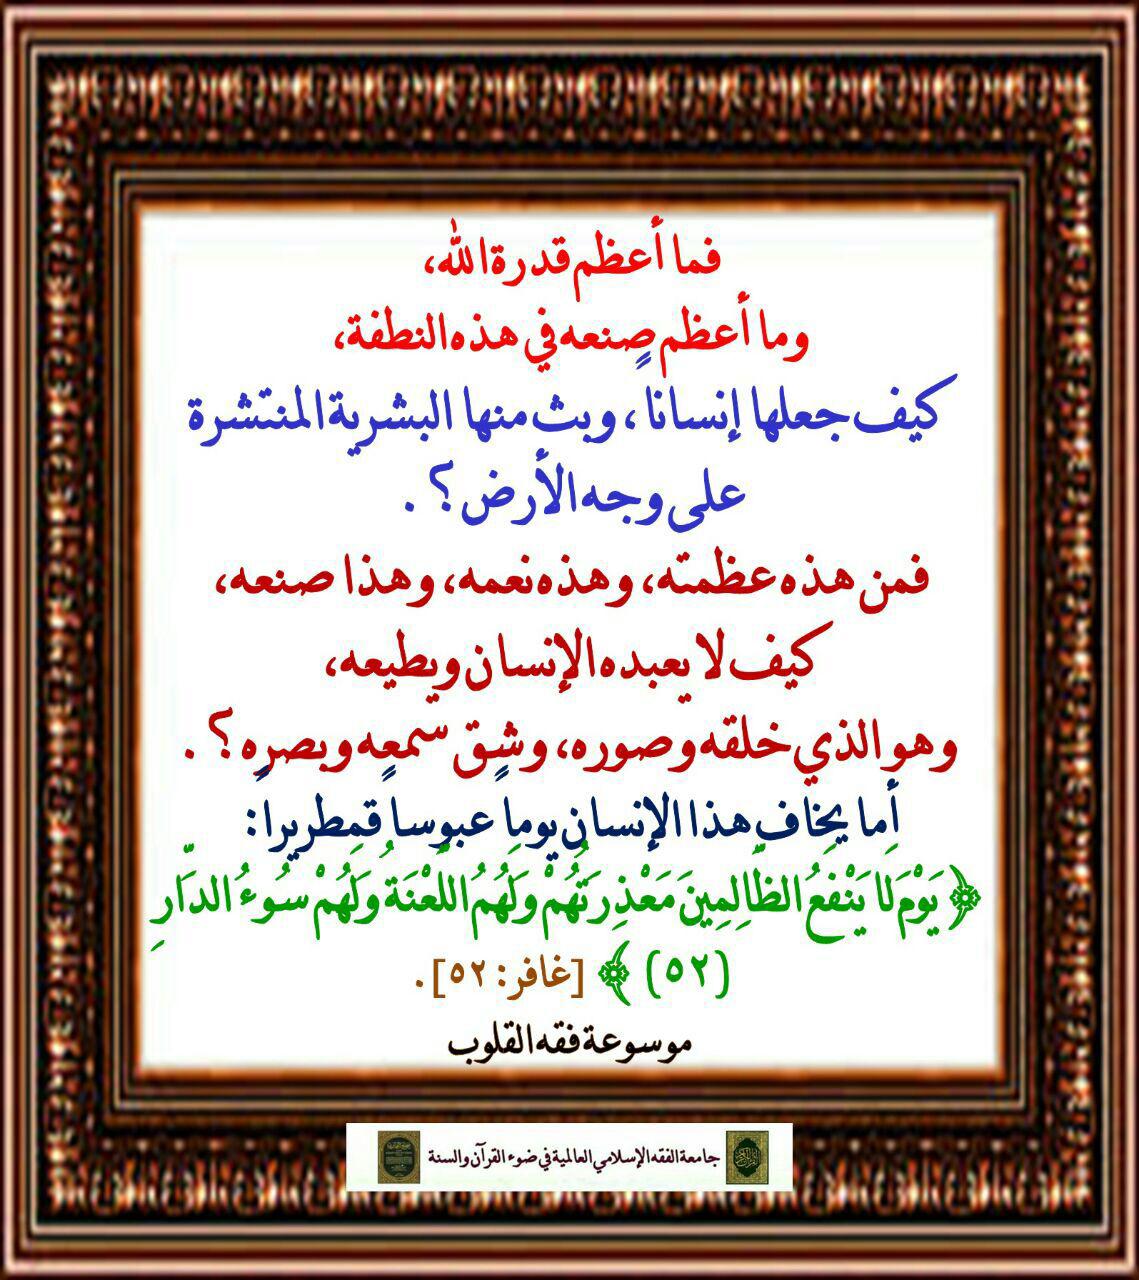 فما أعظم قدرة الله،
وما أعظم صنعه في هذه النطفة،
كيف جعلها إنساناً، وبث منها البشرية المنتشرة
على وجه الأرض؟ .
فمن هذه عظمته، وهذه نعمه، وهذا صنعه،
كيف لا يعبده الإنسان ويطيعه،
وهو الذي خلقه وصوره، وشق سمعه وبصره؟ .
أما يخاف هذا الإنسان يوماً عبوساً قمطريراً:
﴿ يَوْمَ لَا يَنْفَعُ الظَّالِمِينَ مَعْذِرَتُهُمْ وَلَهُمُ اللَّعْنَةُ وَلَهُمْ سُوءُ الدَّارِ
(٥٢) ﴾ [غافر: ٥٢].
موسوعة فقه القلوب
جامعة الفقه الإسلامي العالمية في ضوء القرآن والسنة